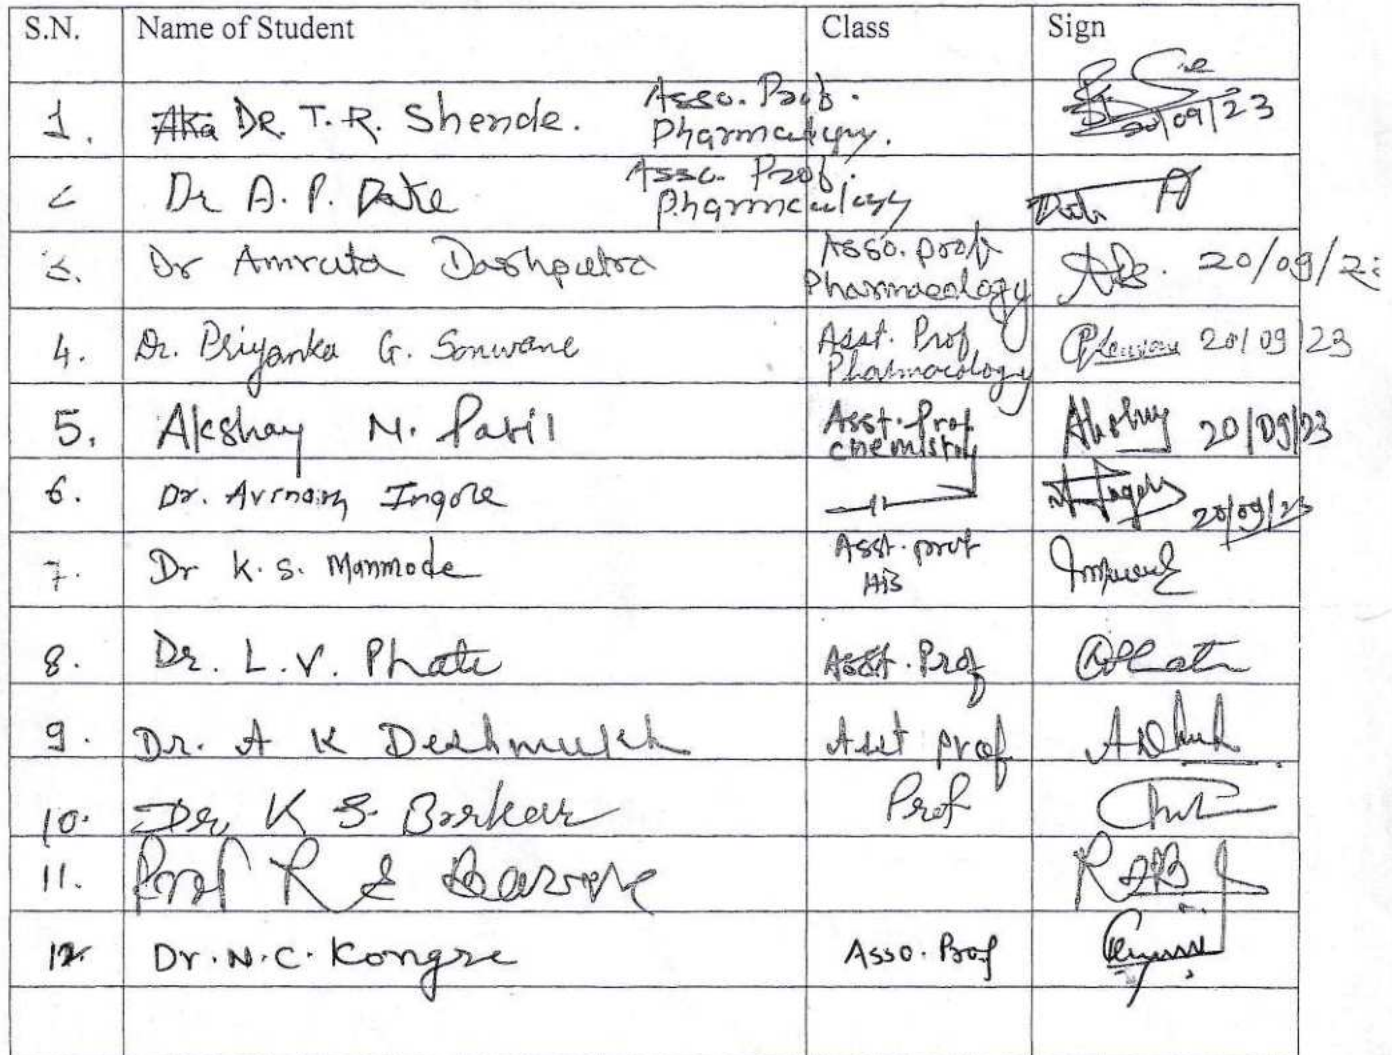 S.N. Name of Student Class Sign
1. Dr. T. R. Shende. Asso. Prof. 20/09/23
Pharmacology.
2 Dr A. P. Date Asso. Prof.
Pharmacology
3. Dr Amruta Dashputra Asso. prof 20/09/2
Pharmacology
4. Dr. Priyanka G. Sonwane Asst. Prof 20/09/23
Pharmacology
5. Akshay M. Patil Asst. Prof Akshay 20/09/23
chemistry
6. Dr. Avinash Ingole 20/09/23
7. Dr K. S. Manmode Asst. prof
8. Dr. L. V. Phate Asst. Prof
9. Dr. A K Deshmukh Asst prof
10. Dr. K S. Borkar Prof
11. Prof R S
12. Dr. N. C. Kongre Asso. Prof